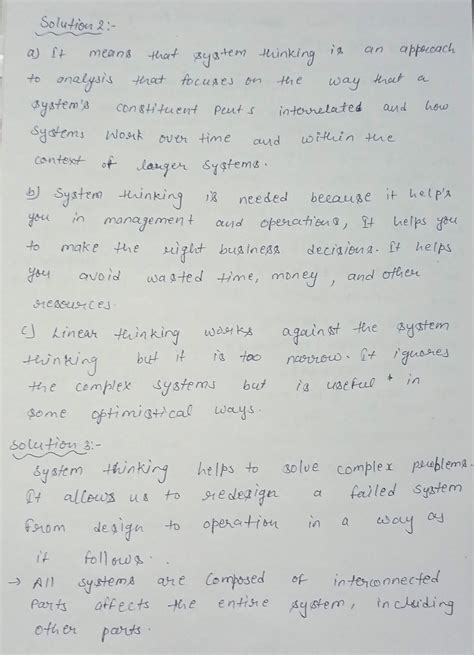 Solution 2:-
a) It means that system thinking is an approach
to analysis that focuses on the way that a
system's constituent parts interrelated and how
systems work over time and within the
context of larger systems.
b) System thinking is needed because it help's
you in management and operations, It helps you
to make the right business decisions. It helps
you avoid wasted time, money, and other
resources.
c) Linear thinking works against the system
thinking but it is too narrow. It ignores
the complex systems but is useful in
some optimistical ways.
Solution 3:-
System thinking helps to solve complex problems.
It allows us to redesign a failed system
from design to operation in a way as
it follows.
→ All systems are composed of interconnected
parts affects the entire system, including
other parts.